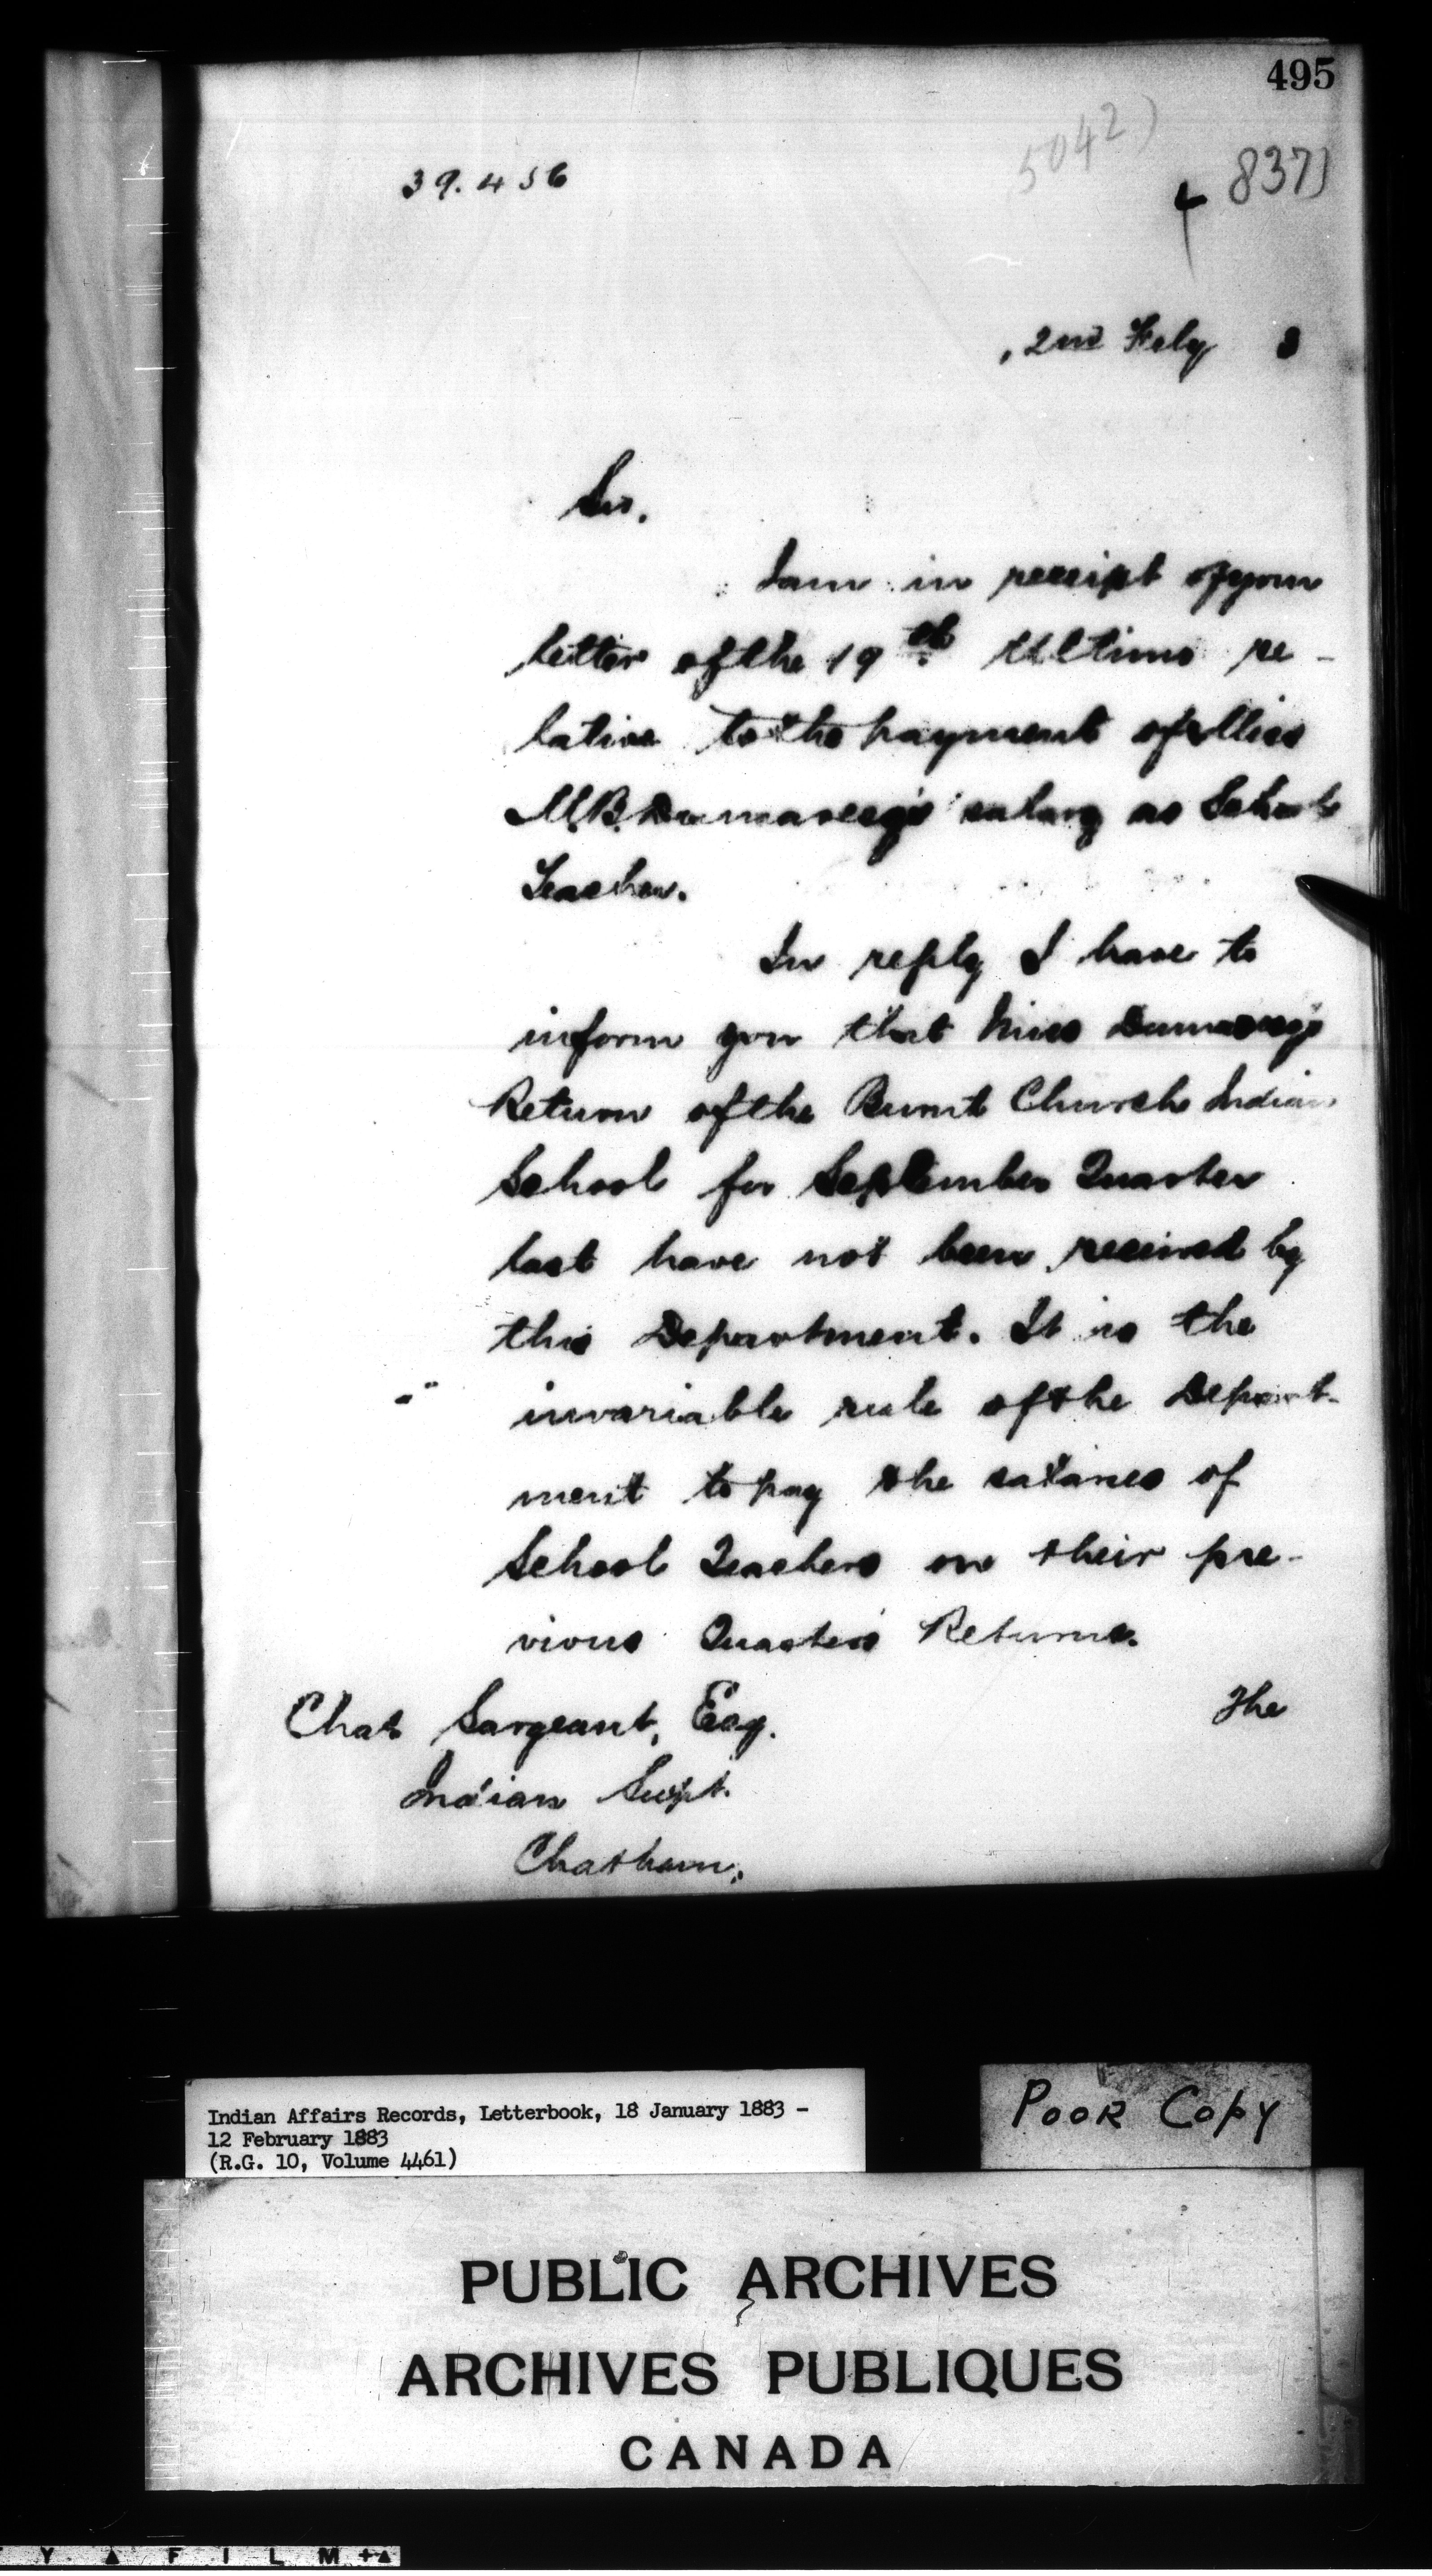 495
5042)
39.456
837)
2nd Feby 3
Sir,
I am in receipt of your
letter of the 19th Ultimo re-
lative to the payment of Miss
M.B. Dumaresq's salary as School
Teacher.
In reply I have to
inform you that Miss Dumaresq's
Return of the Burnt Church Indian
School for September Quarter
last have not been received by
this Department. It is the
invariable rule of the Depart-
ment to pay the salaries of
School Teachers on their pre-
vious Quarter's Returns.
The
Chas Sargeant, Esq.
Indian Supt.
Chatham,
Indian Affairs Records, Letterbook, 18 January 1883 -
12 February 1883
(R.G. 10, Volume 4461)
POOR COPY
PUBLIC ARCHIVES
ARCHIVES PUBLIQUES
CANADA
Y FILM